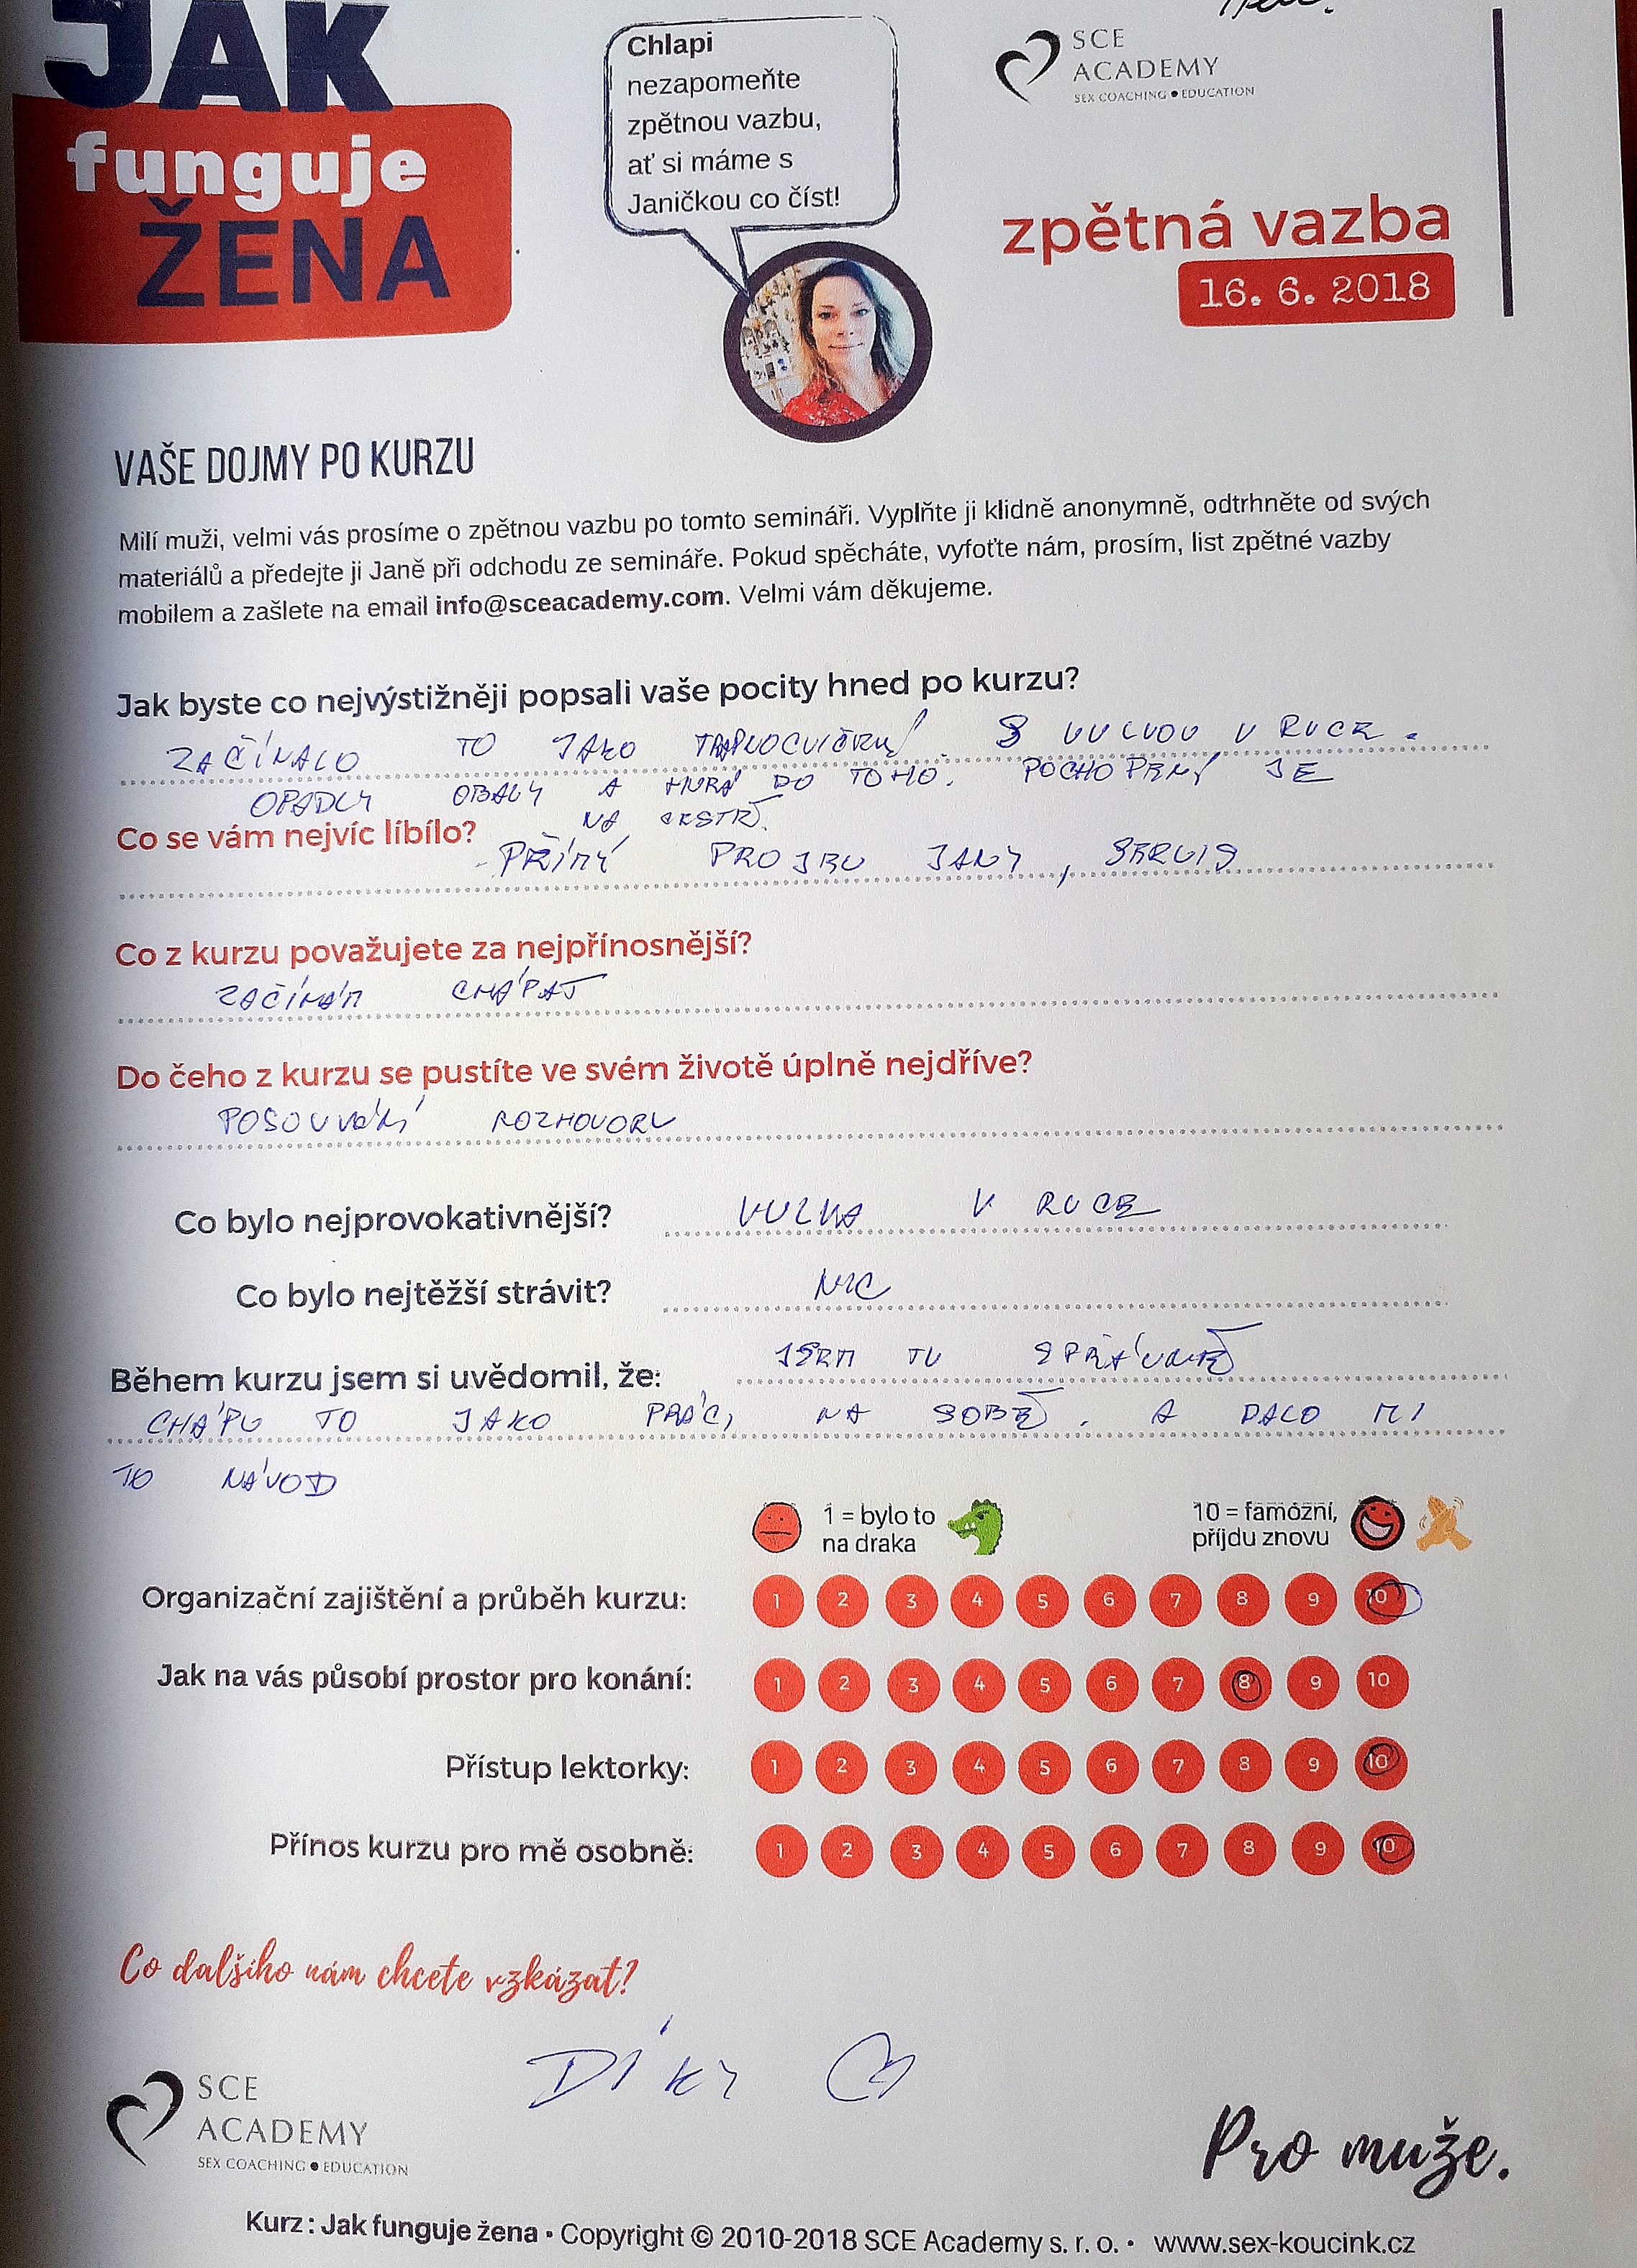 JAK
funguje
ŽENA
Chlapi
nezapomeňte
zpětnou vazbu,
ať si máme s
Janičkou co číst!
SCE
ACADEMY
SEX COACHING ● EDUCATION
zpětná vazba
16. 6. 2018
VAŠE DOJMY PO KURZU
Milí muži, velmi vás prosíme o zpětnou vazbu po tomto semináři. Vyplňte ji klidně anonymně, odtrhněte od svých
materiálů a předejte ji Janě při odchodu ze semináře. Pokud spěcháte, vyfoťte nám, prosím, list zpětné vazby
mobilem a zašlete na email info@sceacademy.com. Velmi vám děkujeme.
Jak byste co nejvýstižněji popsali vaše pocity hned po kurzu?
ZAČÍNALO TO JAKO S VULVOU V RUCE.
OPADLY OBALY A HURÁ DO TOHO. POCHOPENÝ JE
NA CESTĚ.
Co se vám nejvíc líbílo?
- PŘÍMÝ PROJEV JANY, SERVIS
Co z kurzu považujete za nejpřínosnější?
ZAČÍNÁM CHÁPAT
Do čeho z kurzu se pustíte ve svém životě úplně nejdříve?
POSOUVÁNÍ ROZHOVORU
Co bylo nejprovokativnější? VULVA V RUCE
Co bylo nejtěžší strávit? NIC
Během kurzu jsem si uvědomil, že: JSEM TU SPRÁVNĚ
CHÁPU TO JAKO PRÁCI NA SOBĚ. A DALO MI
TO NÁVOD
1 = bylo to
na draka
10 = famózní,
příjdu znovu
Organizační zajištění a průběh kurzu: 1 2 3 4 5 6 7 8 9 10
Jak na vás působí prostor pro konání: 1 2 3 4 5 6 7 8 9 10
Přístup lektorky: 1 2 3 4 5 6 7 8 9 10
Přínos kurzu pro mě osobně: 1 2 3 4 5 6 7 8 9 10
Co dalšího nám chcete vzkázat?
DÍKY
SCE
ACADEMY
SEX COACHING ● EDUCATION
Pro muže.
Kurz: Jak funguje žena • Copyright © 2010-2018 SCE Academy s. r. o. • www.sex-koucink.cz